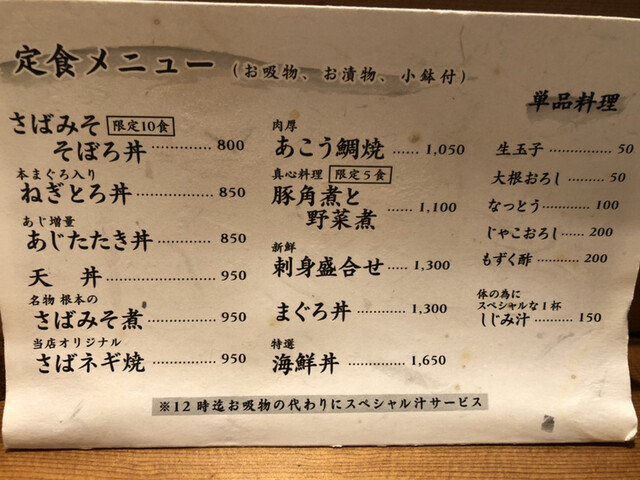 定食メニュー（お吸物、お漬物、小鉢付）
さばみそ 限定10食
そぼろ丼 ............... 800
本まぐろ入り
ねぎとろ丼 ............... 850
あじ増量
あじたたき丼 ............ 850
天　丼 ..................... 950
名物 根本の
さばみそ煮 ............... 950
当店オリジナル
さばネギ焼 ............... 950
肉厚
あこう鯛焼 ...... 1,050
真心料理 限定5食
豚角煮と
野菜煮 ...... 1,100
新鮮
刺身盛合せ ...... 1,300
まぐろ丼 ......... 1,300
特選
海鮮丼 ............ 1,650
単品料理
生玉子 ............... 50
大根おろし ......... 50
なっとう ............ 100
じゃこおろし ...... 200
もずく酢 ............ 200
体の為に
スペシャルな1杯
しじみ汁 ......... 150
※12時迄お吸物の代わりにスペシャル汁サービス